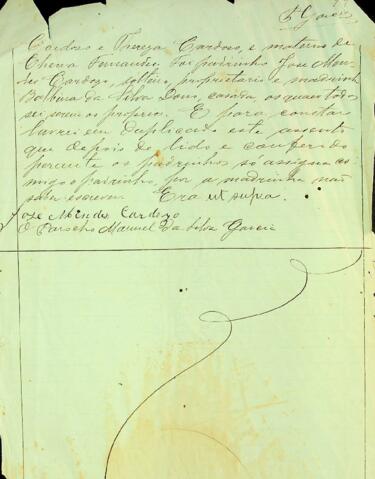 S. Garcia
Cardoso e Thereza Cardoso, e materno de
Foi padrinho José Men-
des Cardozo, solteiro, proprietario e madrinha
Barbara da Silva casada, os quaes todos
sei serem os proprios. E para constar
lavrei em duplicado este assento
que depois de lido e conferido
perante os padrinhos só assigna co-
migo o padrinho, por a madrinha não
saber escrever. Era ut supra.
José Mendes Cardozo
O Parocho Manuel da Silva Garcia